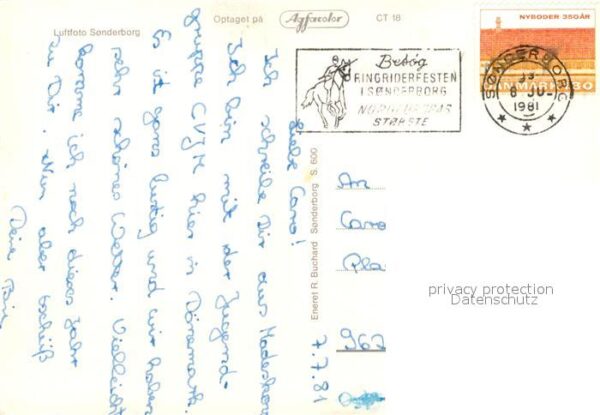 Luftfoto Sønderborg
Optaget på Agfacolor CT 18
NYBODER 350 ÅR
DANMARK
SØNDERBORG
8 JU
1981
Besøg
RINGRIDERFESTEN
I SØNDERBORG
NORDEUROPAS
STØRSTE
Eneret R. Buchard Sønderborg S. 600
7.7.81
Liebe Caro!
Ich schreibe Dir aus
Ich bin mit der Jugend-
gruppe CVJM hier in Dänemark.
Es ist ganz lustig und wir haben
sehr schönes Wetter. Vielleicht
komme ich noch dieses Jahr
zu Dir. Nun aber tschüß
Deine
An
Caro
Pla
967
privacy protection
Datenschutz